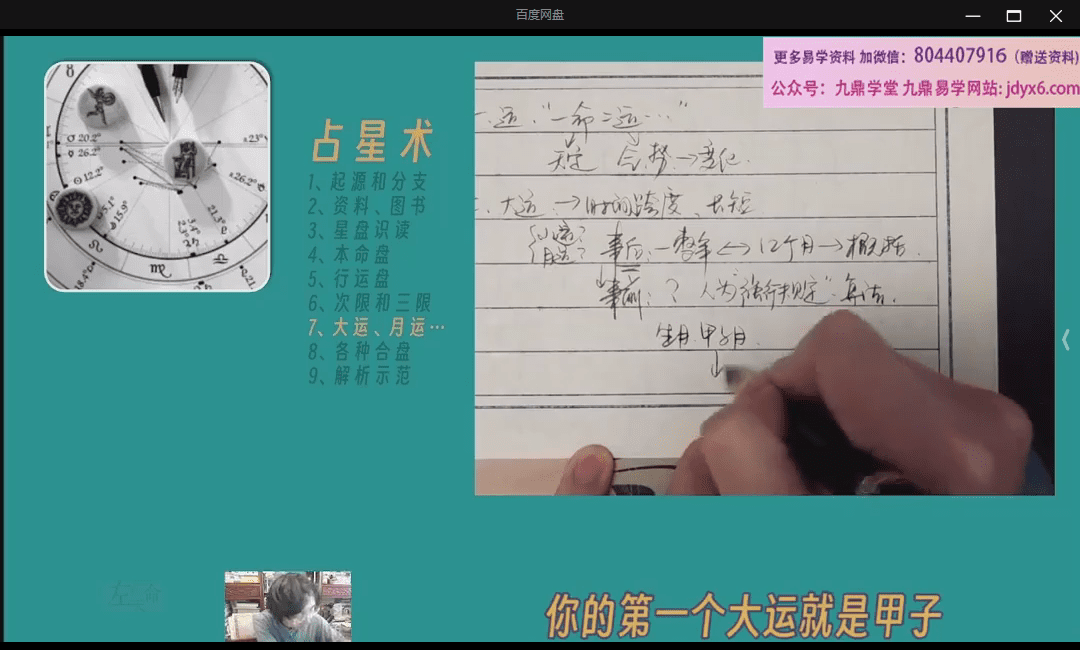 百度网盘
更多易学资料 加微信：804407916（赠送资料)
公众号：九鼎学堂 九鼎易学网站: jdyx6.com
占星术
1、起源和分支
2、资料、图书
3、星盘识读
4、本命盘
5、行运盘
6、次限和三限
7、大运、月运…
8、各种合盘
9、解析示范
一运:“一命二运…”
天定 气势→变化.
大运→时间跨度、长短
事后:一整年↔12个月→概括.
事前:? 人为“强行规定”算法.
生月.甲子月.
你的第一个大运就是甲子